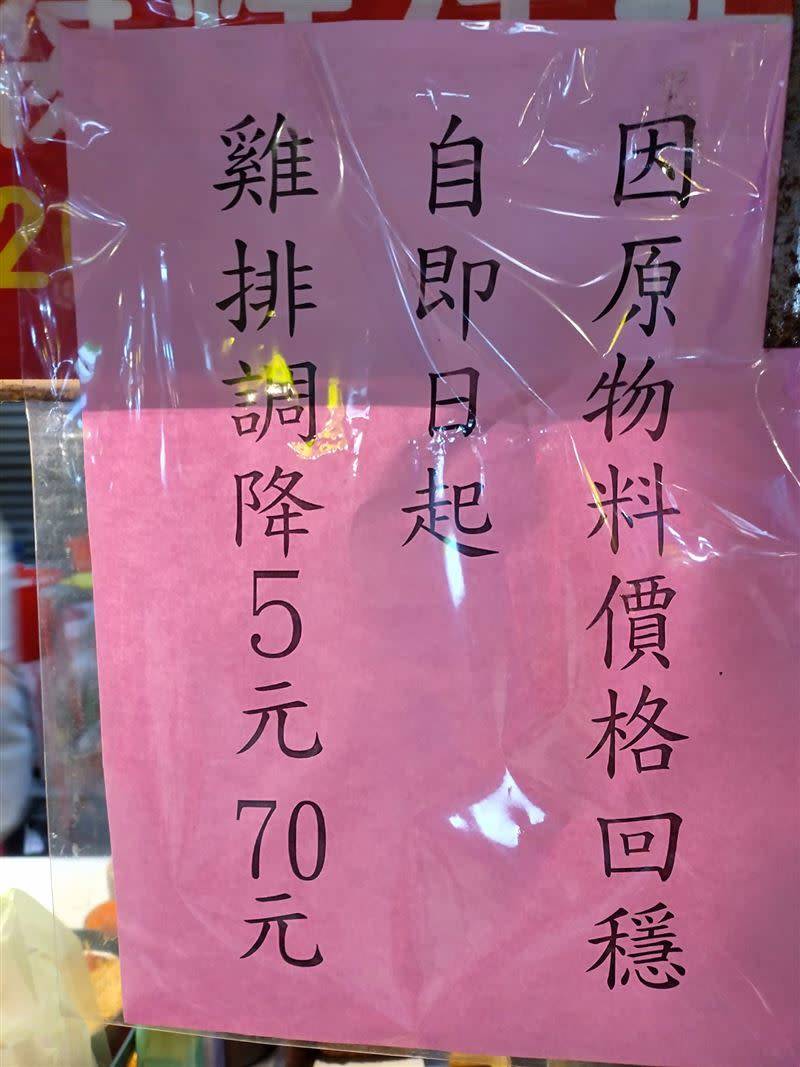 因原物料價格回穩
自即日起
雞排調降5元 70元